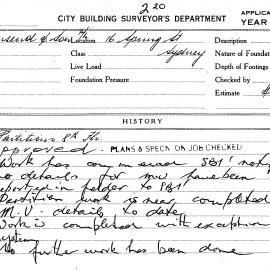 2 20
CITY BUILDING SURVEYOR'S DEPARTMENT
APPLICA
YEAR
Location 16 Spring St
Description
Class Sydney
Nature of Foundat
Live Load
Depth of Footings
Foundation Pressure
Checked by
Estimate $
HISTORY
Partitions 8th Flr.
Approved. PLANS & SPECN ON JOB CHECKED
Work has commenced SBI notif
no details for MV have been
reported in folder to SBI
Partition work is near completed
M.V. details to date
Work is completed with exception
system
No further work has been done